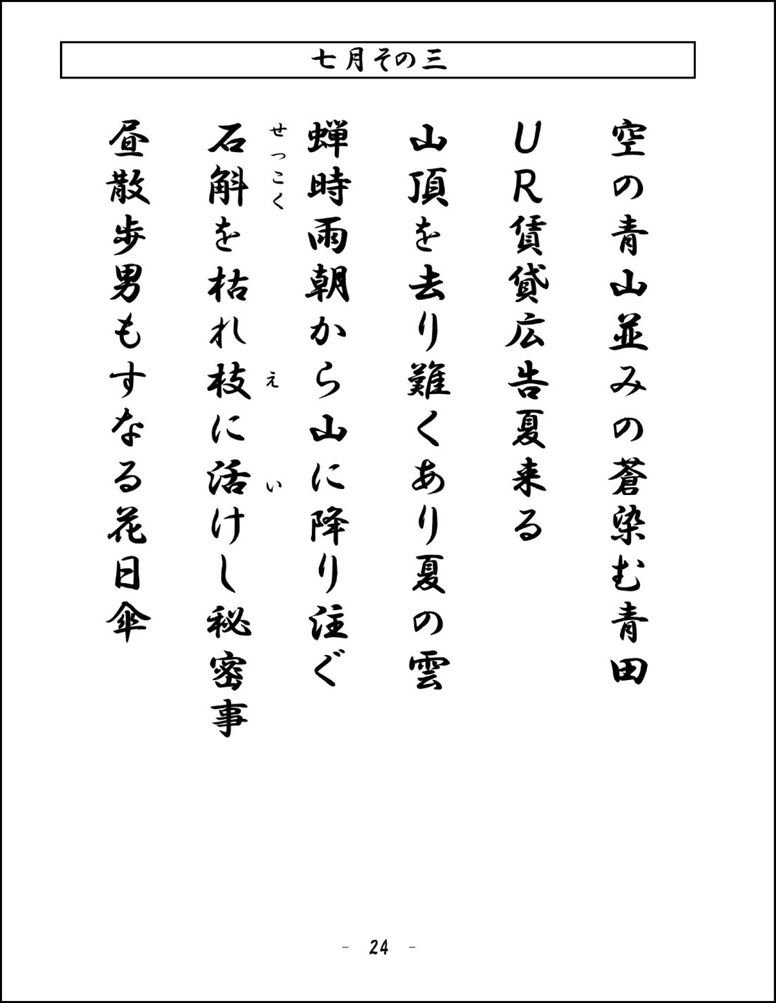 七月その三
空の青山並みの蒼染む青田
UR賃貸広告夏来る
山頂を去り難くあり夏の雲
蝉時雨朝から山に降り注ぐ
せっこく え い
石斛を枯れ枝に活けし秘密事
昼散歩男もすなる花日傘
- 24 -